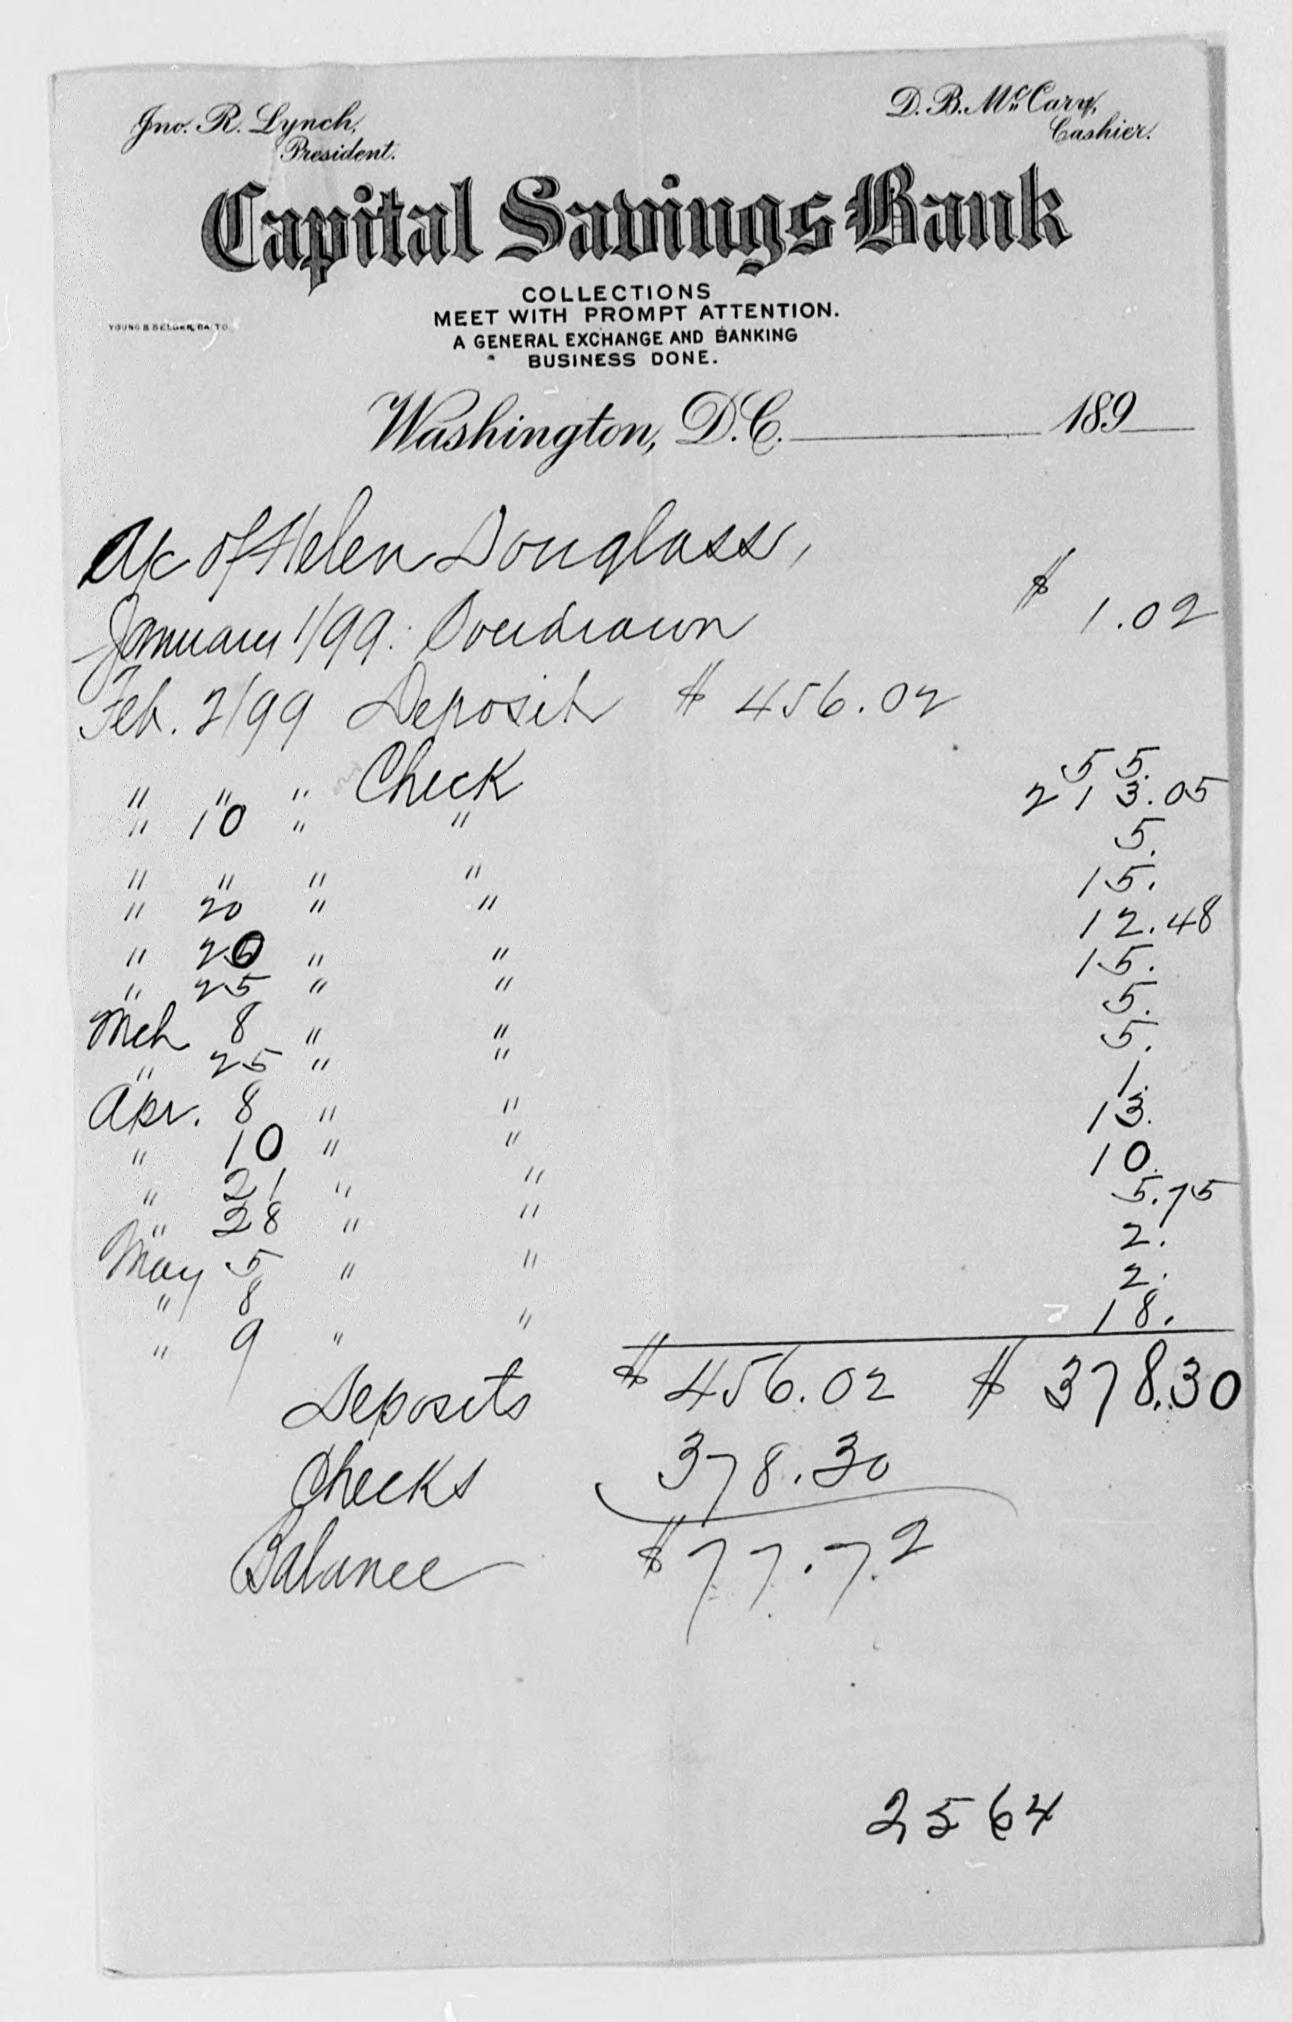 Jno. R. Lynch,
President.
D. B. McCary,
Cashier.
Capital Savings Bank
COLLECTIONS
MEET WITH PROMPT ATTENTION.
A GENERAL EXCHANGE AND BANKING
BUSINESS DONE.
YOUNG & SELDEN, BALTO.
Washington, D.C. 189
A/c of Helen Douglass,
January 1/99. Overdrawn $ 1.02
Feb. 2/99 Deposit $ 456.02
" " " Check 55.
" 10 " " 213.05
" " " " 5.
" 20 " " 15.
" 20 " " 12.48
" 25 " " 15.
Mch 8 " " 5.
" 25 " " 5.
Apr. 8 " " 1.
" 10 " " 13.
" 21 " " 10.
" 28 " " 5.75
May 5 " " 2.
" 8 " 2.
" 9 " " 18.
Deposits $ 456.02 $ 378.30
Checks 378.30
Balance $77.72
2564